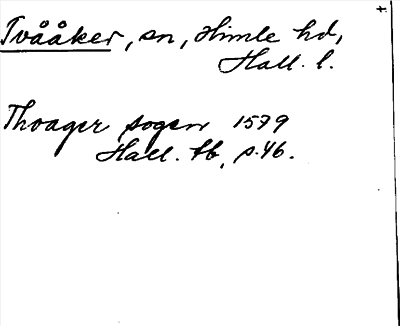 +
Tvååker, sn, Himle hd,
Hall. l.
Thoager sogen 1579
Hall. tb, s. 46.